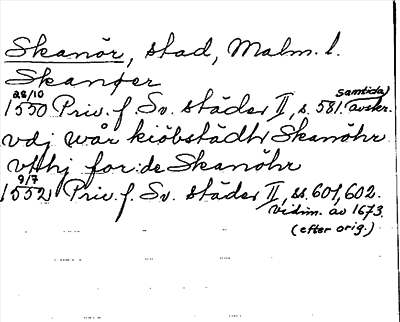 Skanör, stad, Malm. l.
Skanøer
28/10 samtida)
1550 Priv. f. Sv. städer II, s. 581. avskr.
vdj wår kiöbstädh Skanöhr
vthj for:de Skanöhr
9/7
1552 Priv. f. Sv. städer II, ss. 601, 602.
Vidim. av 1673.
(efter orig.)